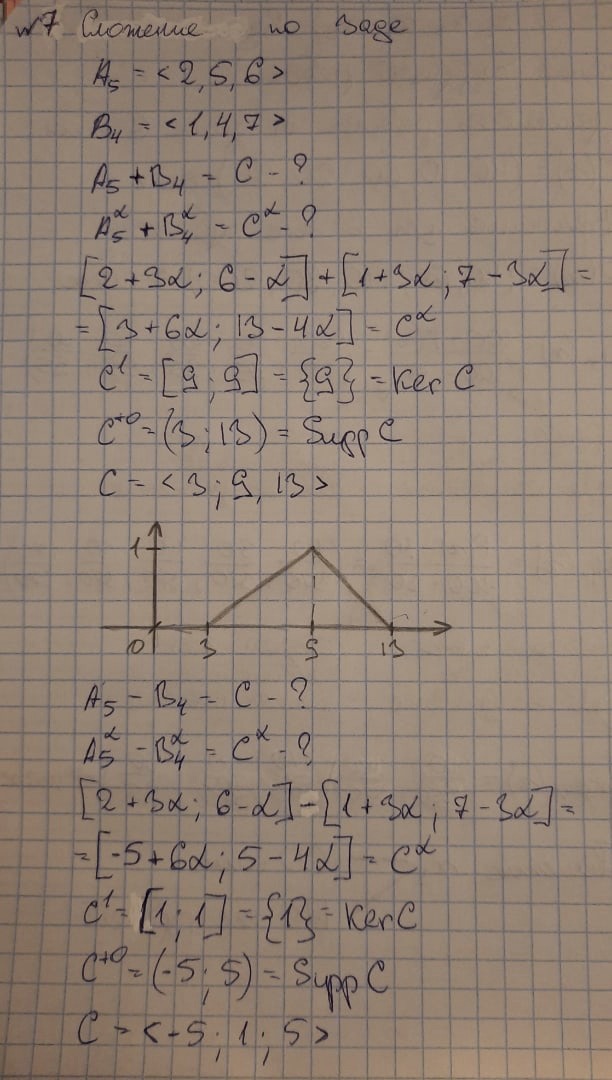 №7 Сложение по Заде
A₅ = <2,5,6>
B₄ = <1,4,7>
A₅ + B₄ = C - ?
A₅^α + B₄^α = C^α - ?
[2+3α; 6-α] + [1+3α; 7-3α] =
= [3+6α; 13-4α] = C^α
C¹ = [9; 9] = {9} = Ker C
C⁺⁰ = (3; 13) = Supp C
C = <3; 9, 13>
1
0 3 9 13
A₅ - B₄ = C - ?
A₅^α - B₄^α = C^α - ?
[2+3α; 6-α] - [1+3α; 7-3α] =
= [-5+6α; 5-4α] = C^α
C¹ = [1; 1] = {1} = Ker C
C⁺⁰ = (-5; 5) = Supp C
C = <-5; 1; 5>